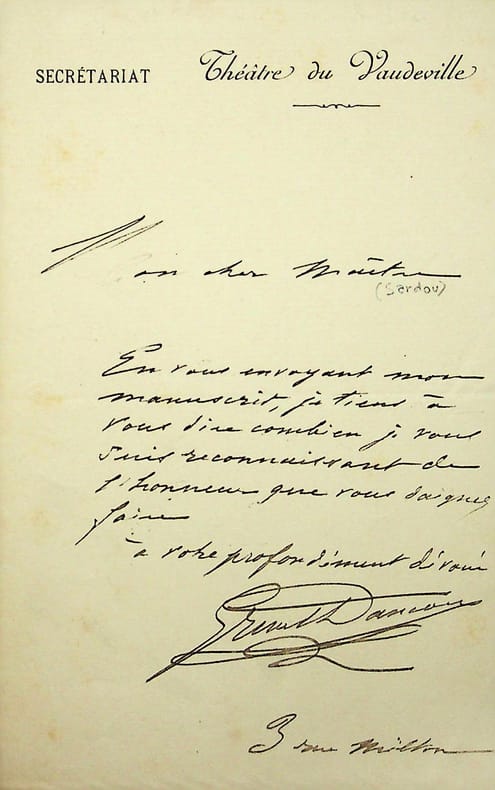 SECRÉTARIAT Théâtre du Vaudeville
Mon cher Maître
(Sardou)
En vous envoyant mon
manuscrit, je tiens à
vous dire combien je vous
suis reconnaissant de
l'honneur que vous daignez
faire
à votre profondément dévoué
Grenet Dancourt
3 rue Milton